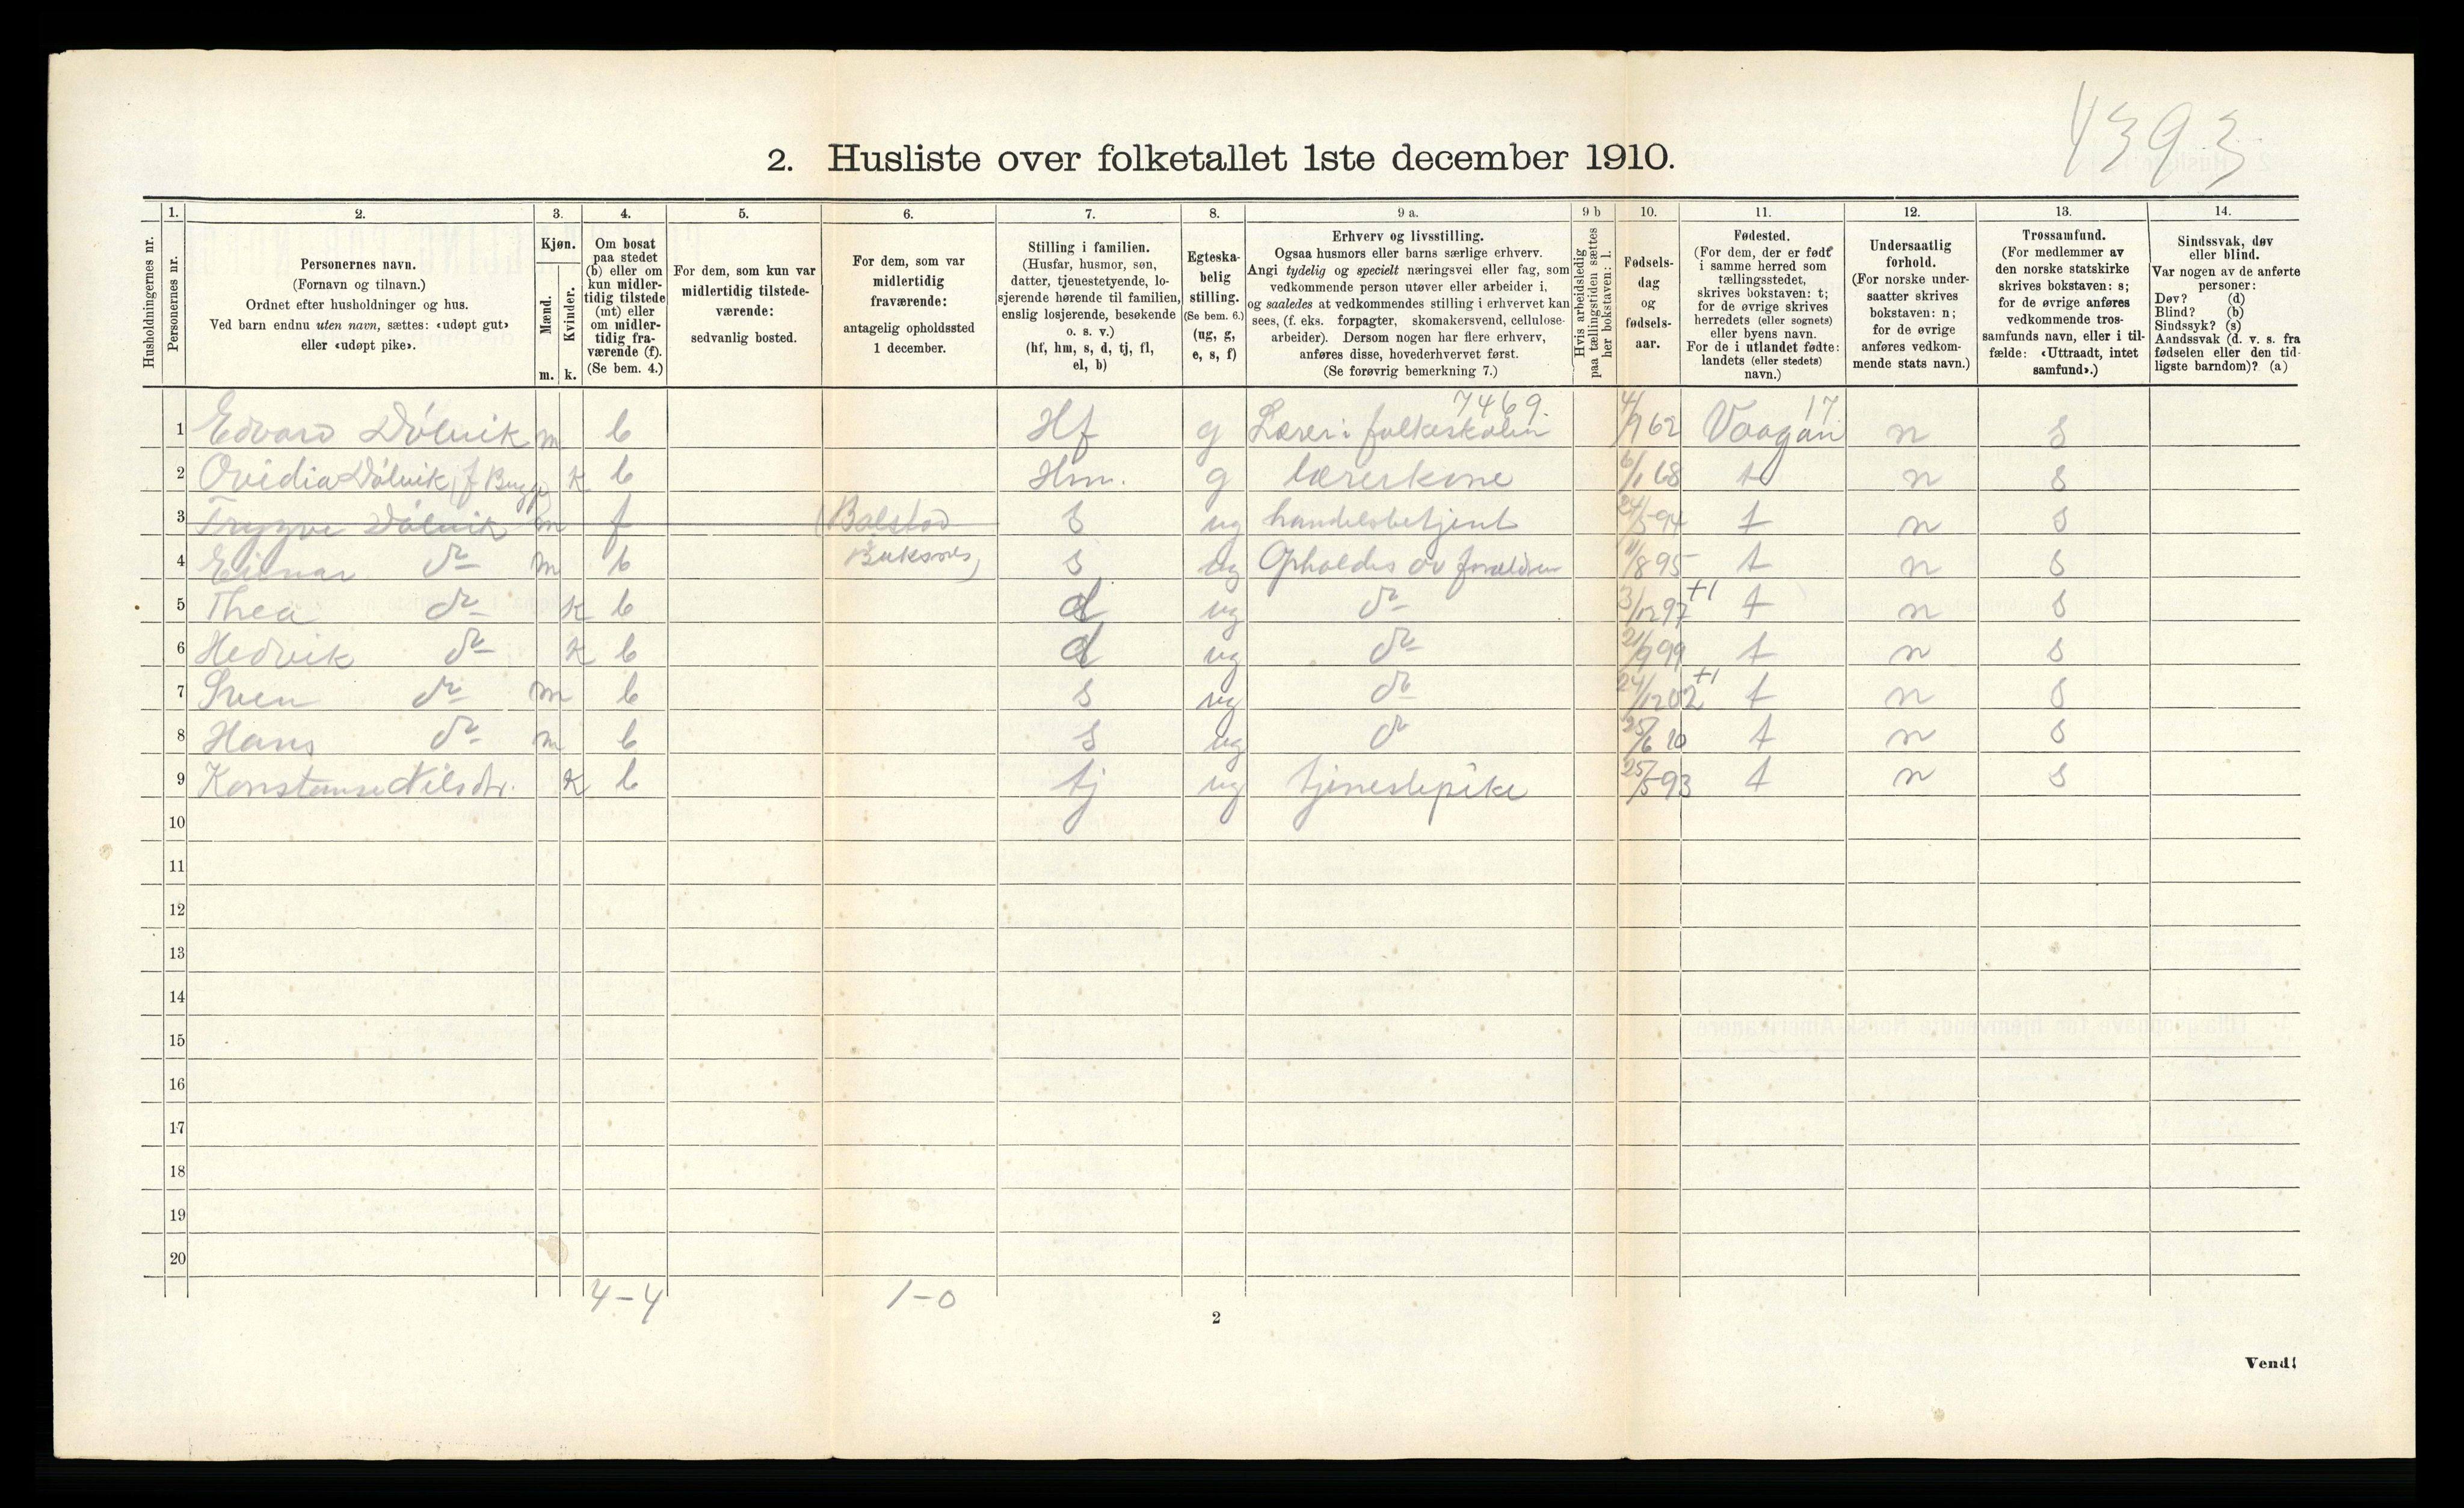 4393
2. Husliste over folketallet 1ste december 1910.
Husholdningernes nr.
1.
Personernes nr.
2.
Personernes navn.
(Fornavn og tilnavn.)
Ordnet efter husholdninger og hus.
Ved barn endnu uten navn, sættes: «udøpt gut»
eller «udøpt pike».
3.
Kjøn.
Mænd.
Kvinder.
m. k.
4.
Om bosat
paa stedet
(b) eller om
kun midler-
tidig tilstede
(mt) eller
om midler-
tidig fra-
værende (f).
(Se bem. 4.)
5.
For dem, som kun var
midlertidig tilstede-
værende:
sedvanlig bosted.
6.
For dem, som var
midlertidig
fraværende:
antagelig opholdssted
1 december.
7.
Stilling i familien.
(Husfar, husmor, søn,
datter, tjenestetyende, lo-
sjerende hørende til familien,
enslig losjerende, besøkende
o. s. v.)
(hf, hm, s, d, tj, fl,
el, b)
8.
Egteska-
belig
stilling.
(Se bem. 6.)
(ug, g,
e, s, f)
9 a.
Erhverv og livsstilling.
Ogsaa husmors eller barns særlige erhverv.
Angi tydelig og specielt næringsvei eller fag, som
vedkommende person utøver eller arbeider i,
og saaledes at vedkommendes stilling i erhvervet kan
sees, (f. eks. forpagter, skomakersvend, cellulose-
arbeider). Dersom nogen har flere erhverv,
anføres disse, hovederhvervet først.
(Se forøvrig bemerkning 7.)
9 b
Hvis arbeidsledig
paa tællingstiden sættes
her bokstaven: l.
10.
Fødsels-
dag
og
fødsels-
aar.
11.
Fødested.
(For dem, der er født
i samme herred som
tællingsstedet,
skrives bokstaven: t;
for de øvrige skrives
herredets (eller sognets)
eller byens navn.
For de i utlandet fødte:
landets (eller stedets)
navn.)
12.
Undersaatlig
forhold.
(For norske under-
saatter skrives
bokstaven: n;
for de øvrige
anføres vedkom-
mende stats navn.)
13.
Trossamfund.
(For medlemmer av
den norske statskirke
skrives bokstaven: s;
for de øvrige anføres
vedkommende tros-
samfunds navn, eller i til-
fælde: «Uttraadt, intet
samfund».)
14.
Sindssvak, døv
eller blind.
Var nogen av de anførte
personer:
Døv? (d)
Blind? (b)
Sindssyk? (s)
Aandssvak (d. v. s. fra
fødselen eller den tid-
ligste barndom)? (a)
7469. 17
1 Edvard Dølvik m b Hf g Lærer i folkeskolen 4/9 62 Vaagan n s
2 Ovidia Dølvik f Bugge k b Hm. g lærerkone 6/1 68 t n s
3 Trygve Dølvik m f (Balstad s ug handelsbetjent 24/5 94 t n s
4 Einar do m b Buksnes) s ug Opholdes av forældrene 11/8 95 t n s
5 Thea do k b d ug do 3/12 97 +1 t n s
6 Hedvik do k b d ug do 21/9 99 t n s
7 Sven do m b s ug do 24/12 02 +1 t n s
8 Hans do m b s ug do 25/6 10 t n s
9 Konstanse Nilsdtr. k b tj ug tjenestepike 25/5 93 t n s
10
11
12
13
14
15
16
17
18
19
20
4-4 1-0
2
Vend!